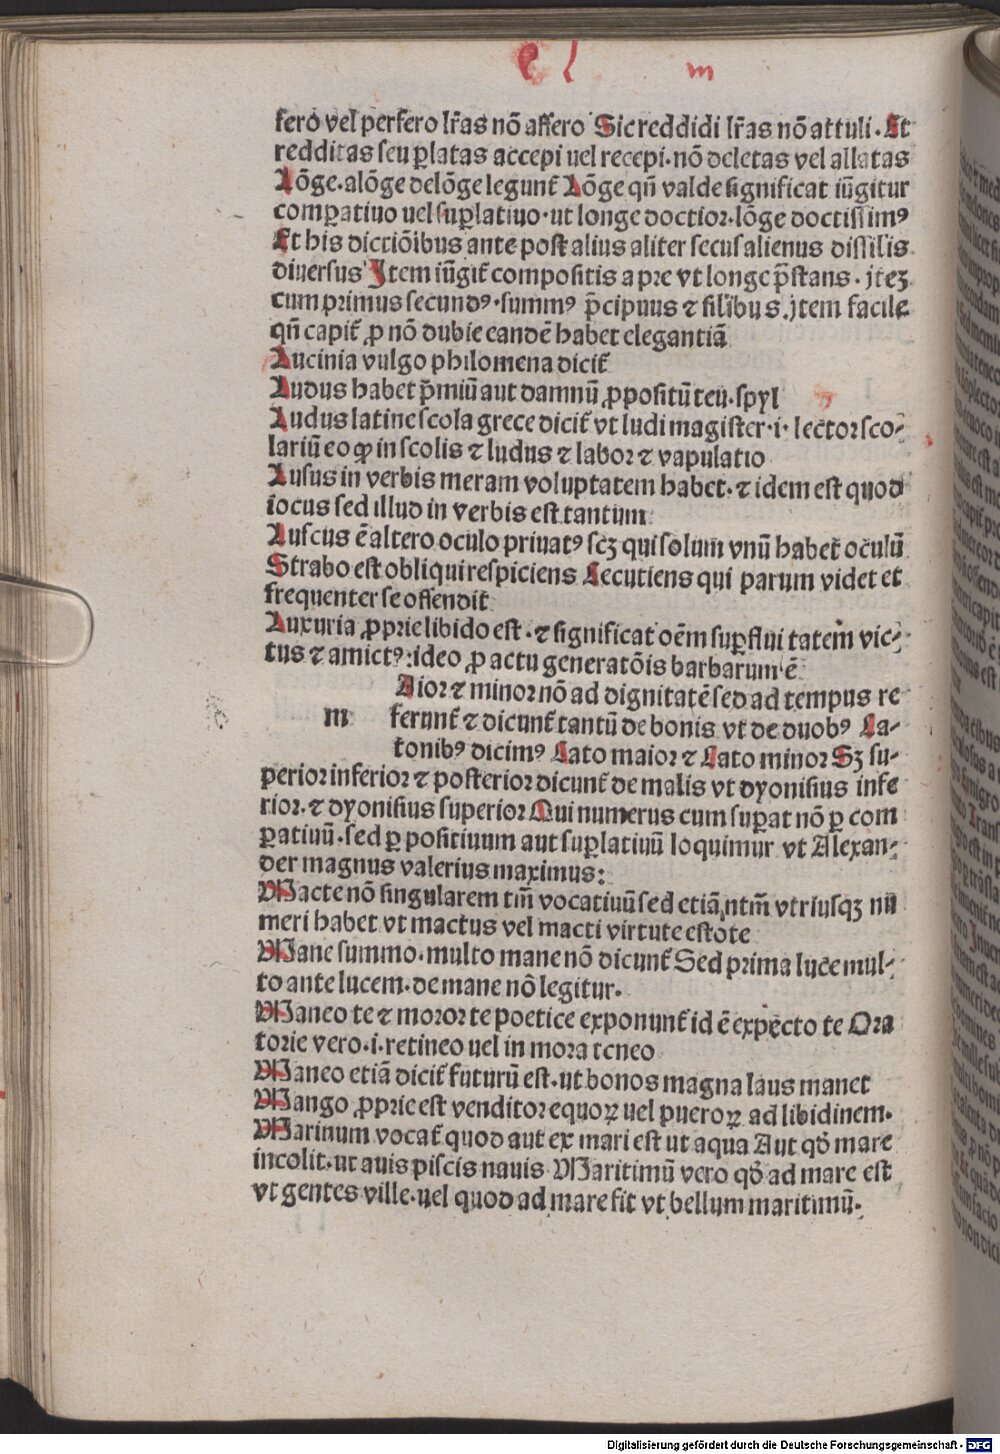 el m
fero vel perfero lr̄as nō affero Sic reddidi lr̄as nō attuli. Et
redditas seu ꝑlatas accepi uel recepi. nō deletas vel allatas
Lōge. alōge delōge legunt̄ Lōge qn̄ valde significat iūgitur
comꝑatiuo uel suꝑlatiuo. ut longe doctior. lōge doctissimꝰ
Et his dictiōibus ante post alius aliter secus alienus dissilis
diuersus Jtem iūgit̄ compositis a pre vt longe p̄stans. jteꝫ
cum primus secundꝰ. summꝰ p̄cipuus ⁊ silībus. jtem facile
qn̄ capit̄ ꝓ nō dubie eandē habet elegantiā
Lucinia vulgo philomena dicit̄
Ludus habet p̄miū aut damnū ꝓpositū teu. spyl
Ludus latine scola grece dicit̄ vt ludi magister. i. lector sco⸗
lariū eo ꝙ in scolis ⁊ ludus ⁊ labor ⁊ vapulatio
Lusus in verbis meram voluptatem habet. ⁊ idem est quod
iocus sed illud in verbis est tantum
Luscus ē altero oculo priuatꝰ scꝫ qui solum vnū habet oculū
Strabo est obliqui respiciens Lecutiens qui parum videt et
frequenter se offendit
Luxuria ꝓprie libido est. ⁊ significat oēm suꝑflui tatem vic⸗
tus ⁊ amictꝰ: ideo ꝓ actu generatōis barbarum ē
Aior ⁊ minor nō ad dignitatē sed ad tempus re
m ferunt̄ ⁊ dicunt̄ tantū de bonis vt de duobꝰ Ca⸗
tonibꝰ dicimꝰ Cato maior ⁊ Cato minor Sꝫ su⸗
perior inferior ⁊ posterior dicunt̄ de malis vt dyonisius infe
rior. ⁊ dyonisius superior Qui numerus cum suꝑat nō ꝑ com
ꝑatiuū. sed ꝑ positiuum aut suꝑlatiuū loquimur vt Alexan⸗
der magnus valerius maximus:
Macte nō singularem tm̄ vocatiuū sed etiā ntm̄ vtriusqꝫ nu
meri habet vt mactus vel macti virtute estote
Mane summo. multo mane nō dicunt̄ Sed prima luce mul⸗
to ante lucem. de mane nō legitur.
Maneo te ⁊ moror te poetice exponunt̄ id ē expecto te Ora
torie vero. i. retineo uel in mora teneo
Maneo etiā dicit̄ futurū est. ut bonos magna laus manet
Mango ꝓprie est venditor equoꝝ uel pueroꝝ ad libidinem.
Marinum vocat̄ quod aut ex mari est ut aqua Aut qd̄ mare
incolit. ut auis piscis nauis Maritimū vero qd̄ ad mare est
vt gentes ville. uel quod ad mare fit vt bellum maritimū.
Digitalisierung gefördert durch die Deutsche Forschungsgemeinschaft - DFG